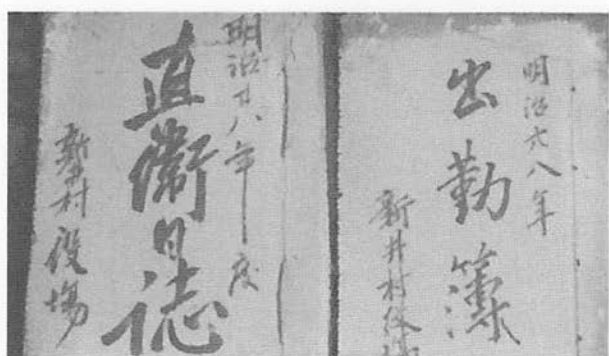 明治廿八年
出勤簿
新井村役場
明治廿八年度
直衛日誌
村役場